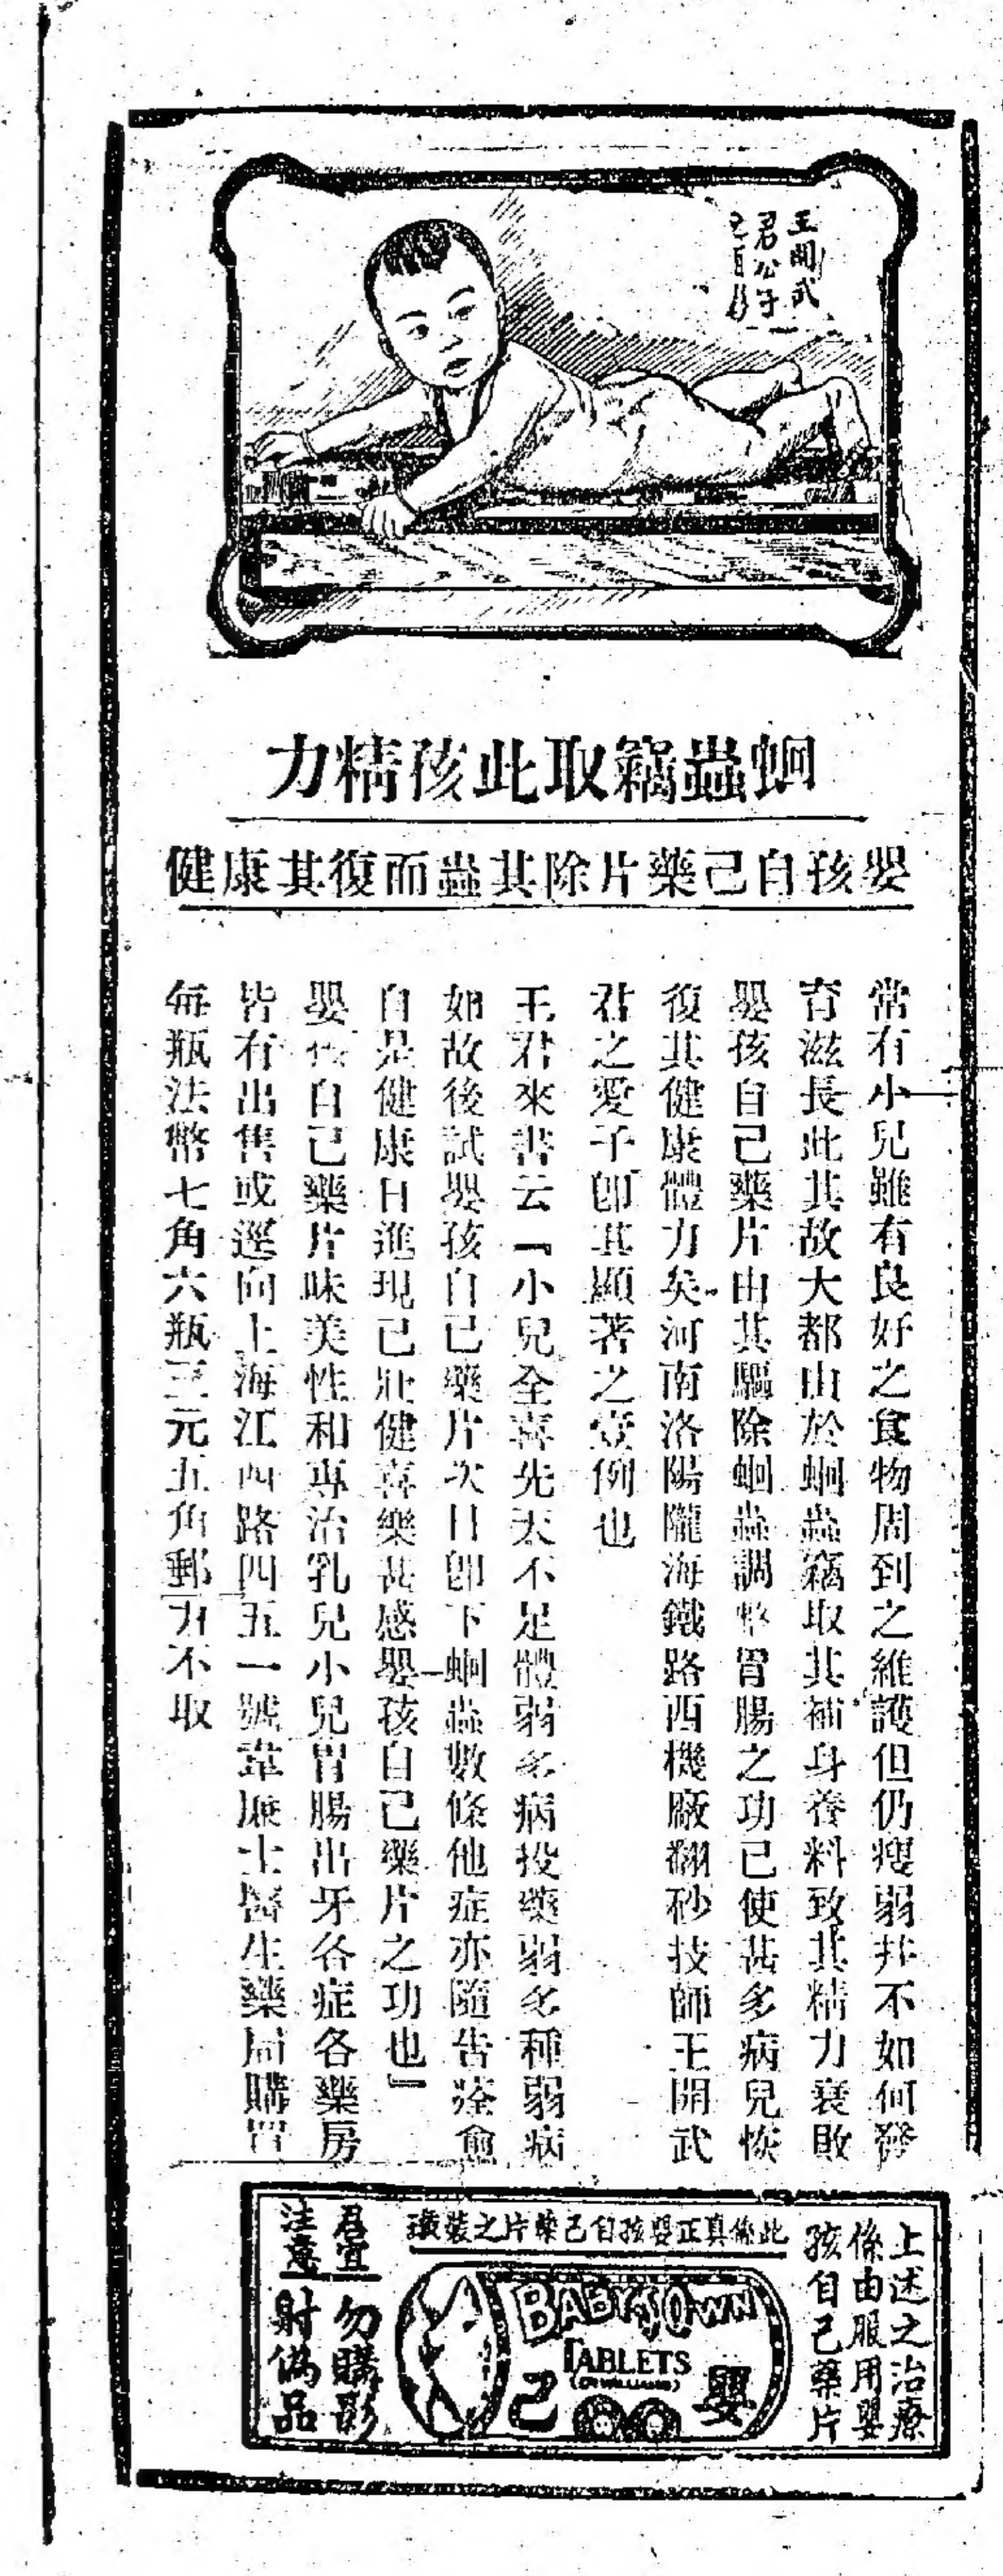 王開武
君公子
蛔蟲竊取此孩精力
嬰孩自己藥片除其蟲而復其康健
常有小兒雖有良好之食物周到之維護但仍瘦弱幷不如何發
育滋長此其故大都由於蛔蟲竊取其補身養料致其精力衰敗
嬰孩自己藥片由其驅除蛔蟲調整胃腸之功已使甚多病兒恢
復其健康體力矣河南洛陽隴海鐵路西機廠翻砂技師王開武
君之愛子卽其顯著之壹例也
王君來書云『小兒全喜先天不足體弱多病投藥弱多種弱病
如故後試嬰孩自己藥片次日卽下蛔蟲數條他症亦隨告痊愈
自是健康日進現已壯健喜樂甚感嬰孩自己藥片之功也』
嬰孩自己藥片味美性和專治乳兒小兒胃腸出牙各症各藥房
皆有出售或逕向上海江西路四五一號韋廉士醫生藥局購買
每瓶法幣七角六瓶三元五角郵力不取
上述之治療
係由服用嬰
孩自己藥片
此係真正嬰孩自己藥片之裝璜
BABY'S OWN
TABLETS
(DR WILLIAMS)
嬰
己
君宜
注意
勿購影
射偽品